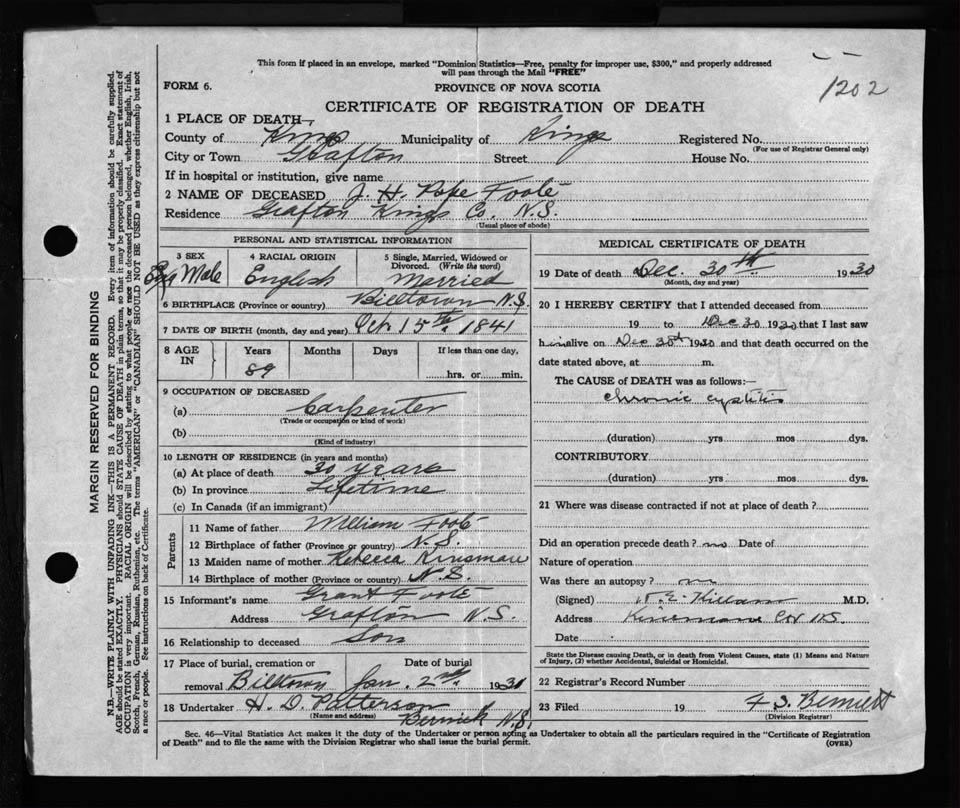 This form if placed in an envelope, marked "Dominion Statistics—Free, penalty for improper use, $300," and properly addressed
will pass through the Mail "FREE"
1202
FORM 6.
PROVINCE OF NOVA SCOTIA
CERTIFICATE OF REGISTRATION OF DEATH
1 PLACE OF DEATH—
County of Kings Municipality of Kings Registered No.
(For use of Registrar General only)
City or Town Grafton Street House No.
If in hospital or institution, give name
2 NAME OF DECEASED J. H. Pope Foote
Residence Grafton Kings Co. N.S.
(Usual place of abode)
PERSONAL AND STATISTICAL INFORMATION
3 SEX 4 RACIAL ORIGIN 5 Single, Married, Widowed or
Divorced. (Write the word)
Male English Married
6 BIRTHPLACE (Province or country) Billtown N.S.
7 DATE OF BIRTH (month, day and year) 15th 1841
8 AGE IN Years Months Days If less than one day,
89 hrs. or min.
9 OCCUPATION OF DECEASED
(a) Carpenter
(Trade or occupation or kind of work)
(b)
(Kind of industry)
10 LENGTH OF RESIDENCE (in years and months)
(a) At place of death 30 years
(b) In province Lifetime
(c) In Canada (if an immigrant)
Parents
11 Name of father William Foote
12 Birthplace of father (Province or country) N.S.
13 Maiden name of mother Rebecca Kinsman
14 Birthplace of mother (Province or country) N.S.
15 Informant's name Grant Foote
Address Grafton N.S.
16 Relationship to deceased Son
17 Place of burial, cremation or Date of burial
removal Billtown Jan. 2nd 1931
18 Undertaker H. D. Patterson
(Name and address) Berwick N.S.
MEDICAL CERTIFICATE OF DEATH
19 Date of death Dec. 30th 1930
(Month, day and year)
20 I HEREBY CERTIFY that I attended deceased from
19 to Dec 30 1930 that I last saw
him alive on Dec 30th 1930 and that death occurred on the
date stated above, at m.
The CAUSE of DEATH was as follows:—
chronic cystitis
(duration) yrs mos dys.
CONTRIBUTORY
(duration) yrs mos dys.
21 Where was disease contracted if not at place of death?
Did an operation precede death? no Date of
Nature of operation
Was there an autopsy? no
(Signed) Killam M.D.
Address Kinsmans Cor N.S.
Date
State the Disease causing Death, or in death from Violent Causes, state (1) Means and Nature
of Injury, (2) whether Accidental, Suicidal or Homicidal.
22 Registrar's Record Number
23 Filed 19
(Division Registrar)
Sec. 46—Vital Statistics Act makes it the duty of the Undertaker or person acting as Undertaker to obtain all the particulars required in the "Certificate of Registration
of Death" and to file the same with the Division Registrar who shall issue the burial permit.
(OVER)
MARGIN RESERVED FOR BINDING
N.B.—WRITE PLAINLY WITH UNFADING INK—THIS IS A PERMANENT RECORD. Every item of information should be carefully supplied.
AGE should be stated EXACTLY. PHYSICIANS should STATE CAUSE OF DEATH in plain terms, so that it may be properly classified. Exact statement of
OCCUPATION is very important. RACIAL ORIGIN will be described by stating to what people or race the deceased person belonged, whether English, Irish,
Scotch, French, German, Russian, Ruthenian, etc. The terms "AMERICAN" or "CANADIAN" SHOULD NOT BE USED as they express citizenship but not
a race or people. See instructions on back of Certificate.